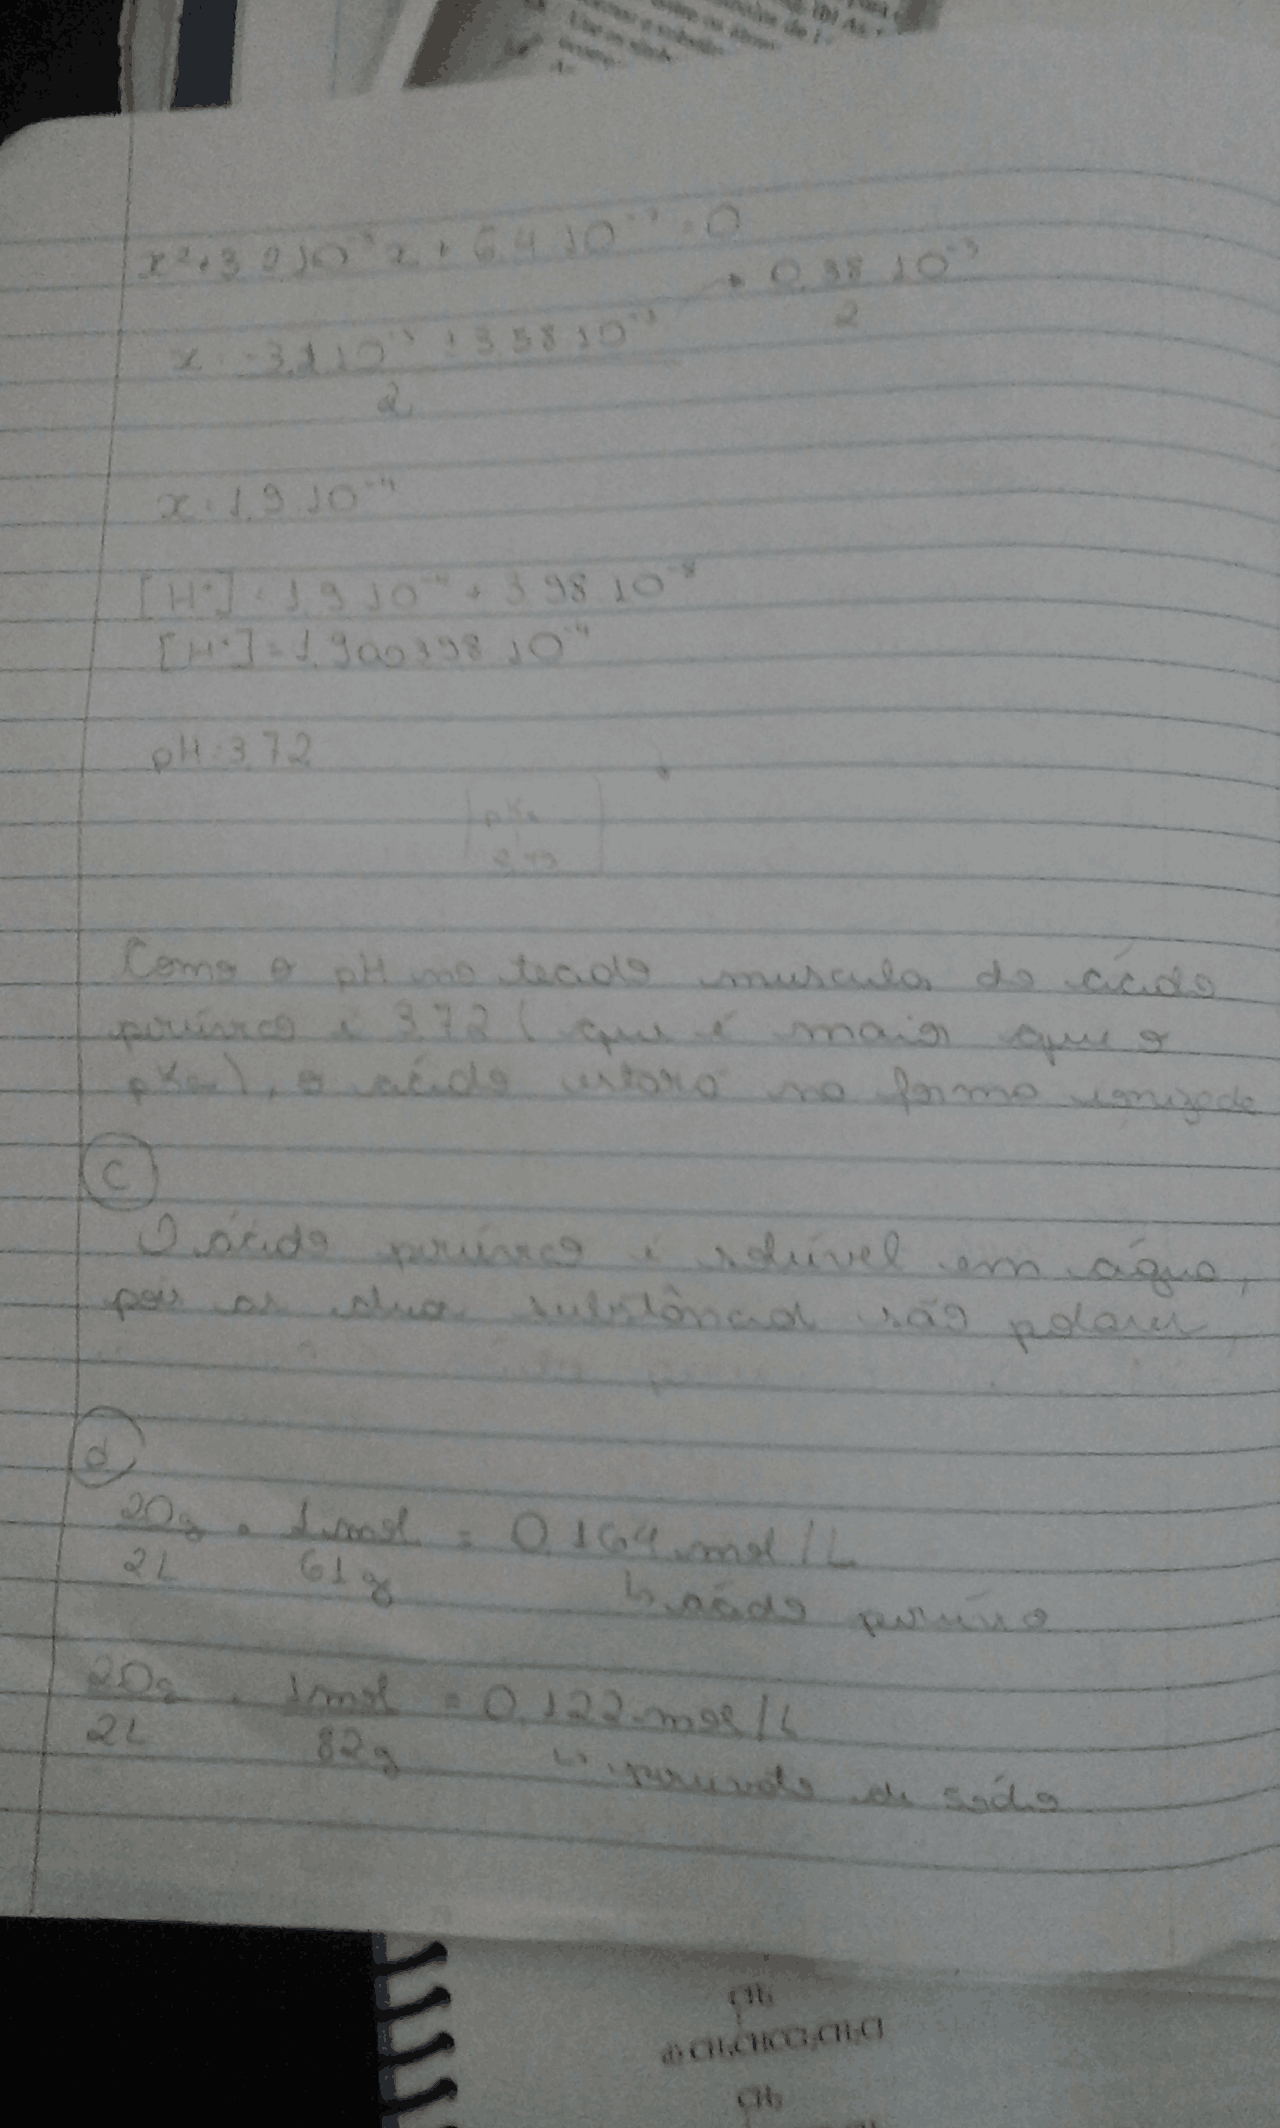 x² + 3,2.10⁻³x + 6,4.10⁻⁷ = 0
x = -3,2.10⁻³ ± 3,58.10⁻³ → 0,38.10⁻³
2 2
x = 1,9.10⁻⁴
[H⁺] = 1,9.10⁻⁴ + 3,98.10⁻⁸
[H⁺] = 1,900398.10⁻⁴
pH = 3,72
pKa
2,49
Como o pH no tecido muscular do ácido
pirúvico é 3,72 (que é maior que o
pKa), o ácido estará na forma ionizada
c
O ácido pirúvico é solúvel em água,
pois as duas substâncias são polares
d
20g . 1mol = 0,164 mol/L
2L 61g ↳ ácido
20g . 1mol = 0,122 mol/L
2L 82g ↳ piruvato de sódio
CH₃
d) CH₃CHCCl₂CH₂Cl
CH₃